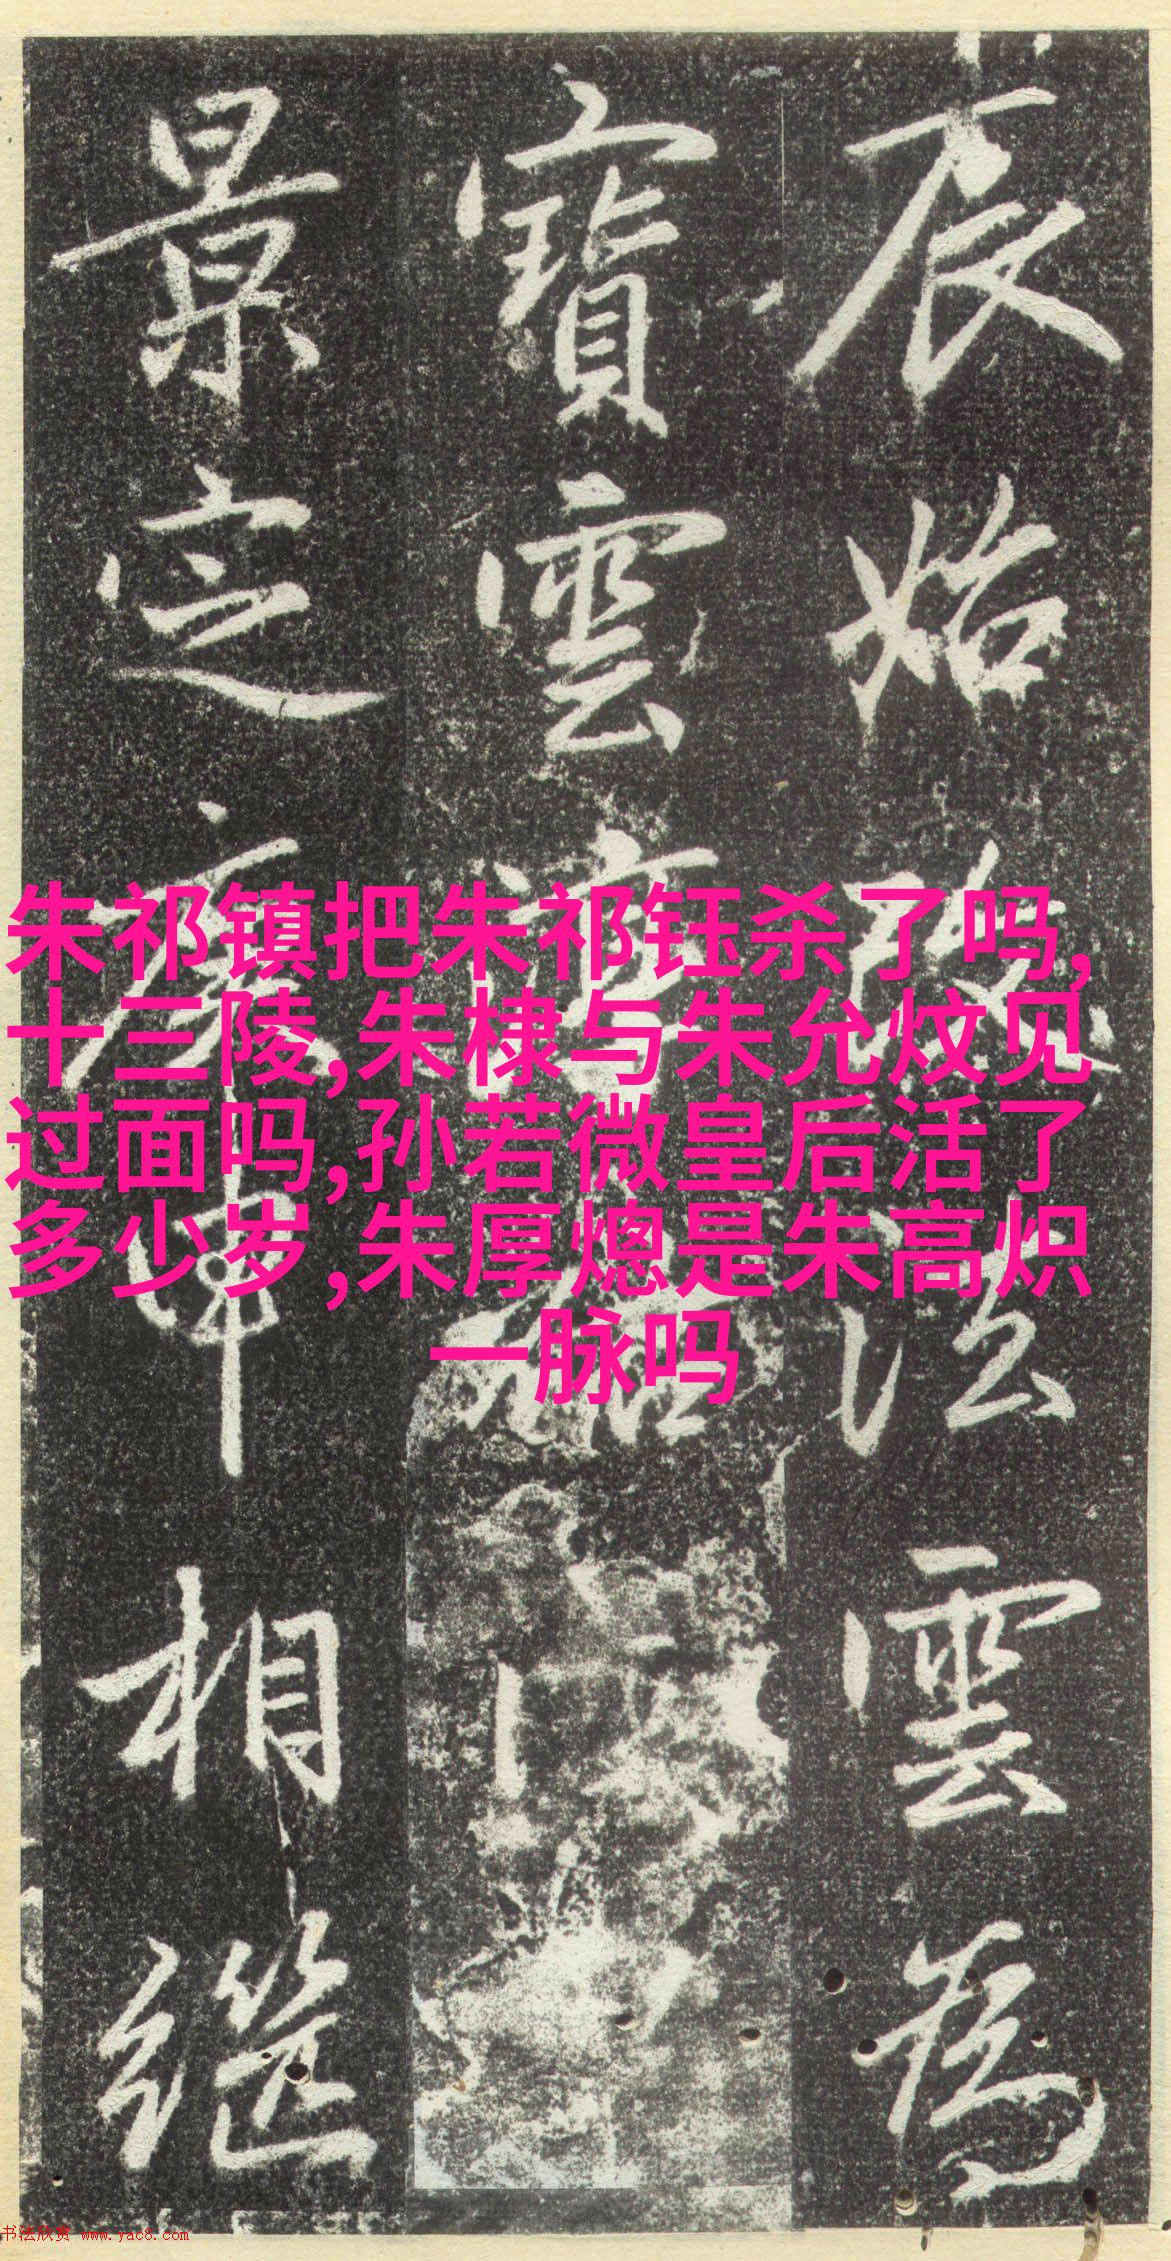 辰始改法雲爲
寶雲
景定庚申相繼
朱祁镇把朱祁钰杀了吗,
十三陵,朱棣与朱允炆见
过面吗,孙若微皇后活了
多少岁,朱厚熜是朱高炽
一脉吗
书法欣赏 www.yac8.com